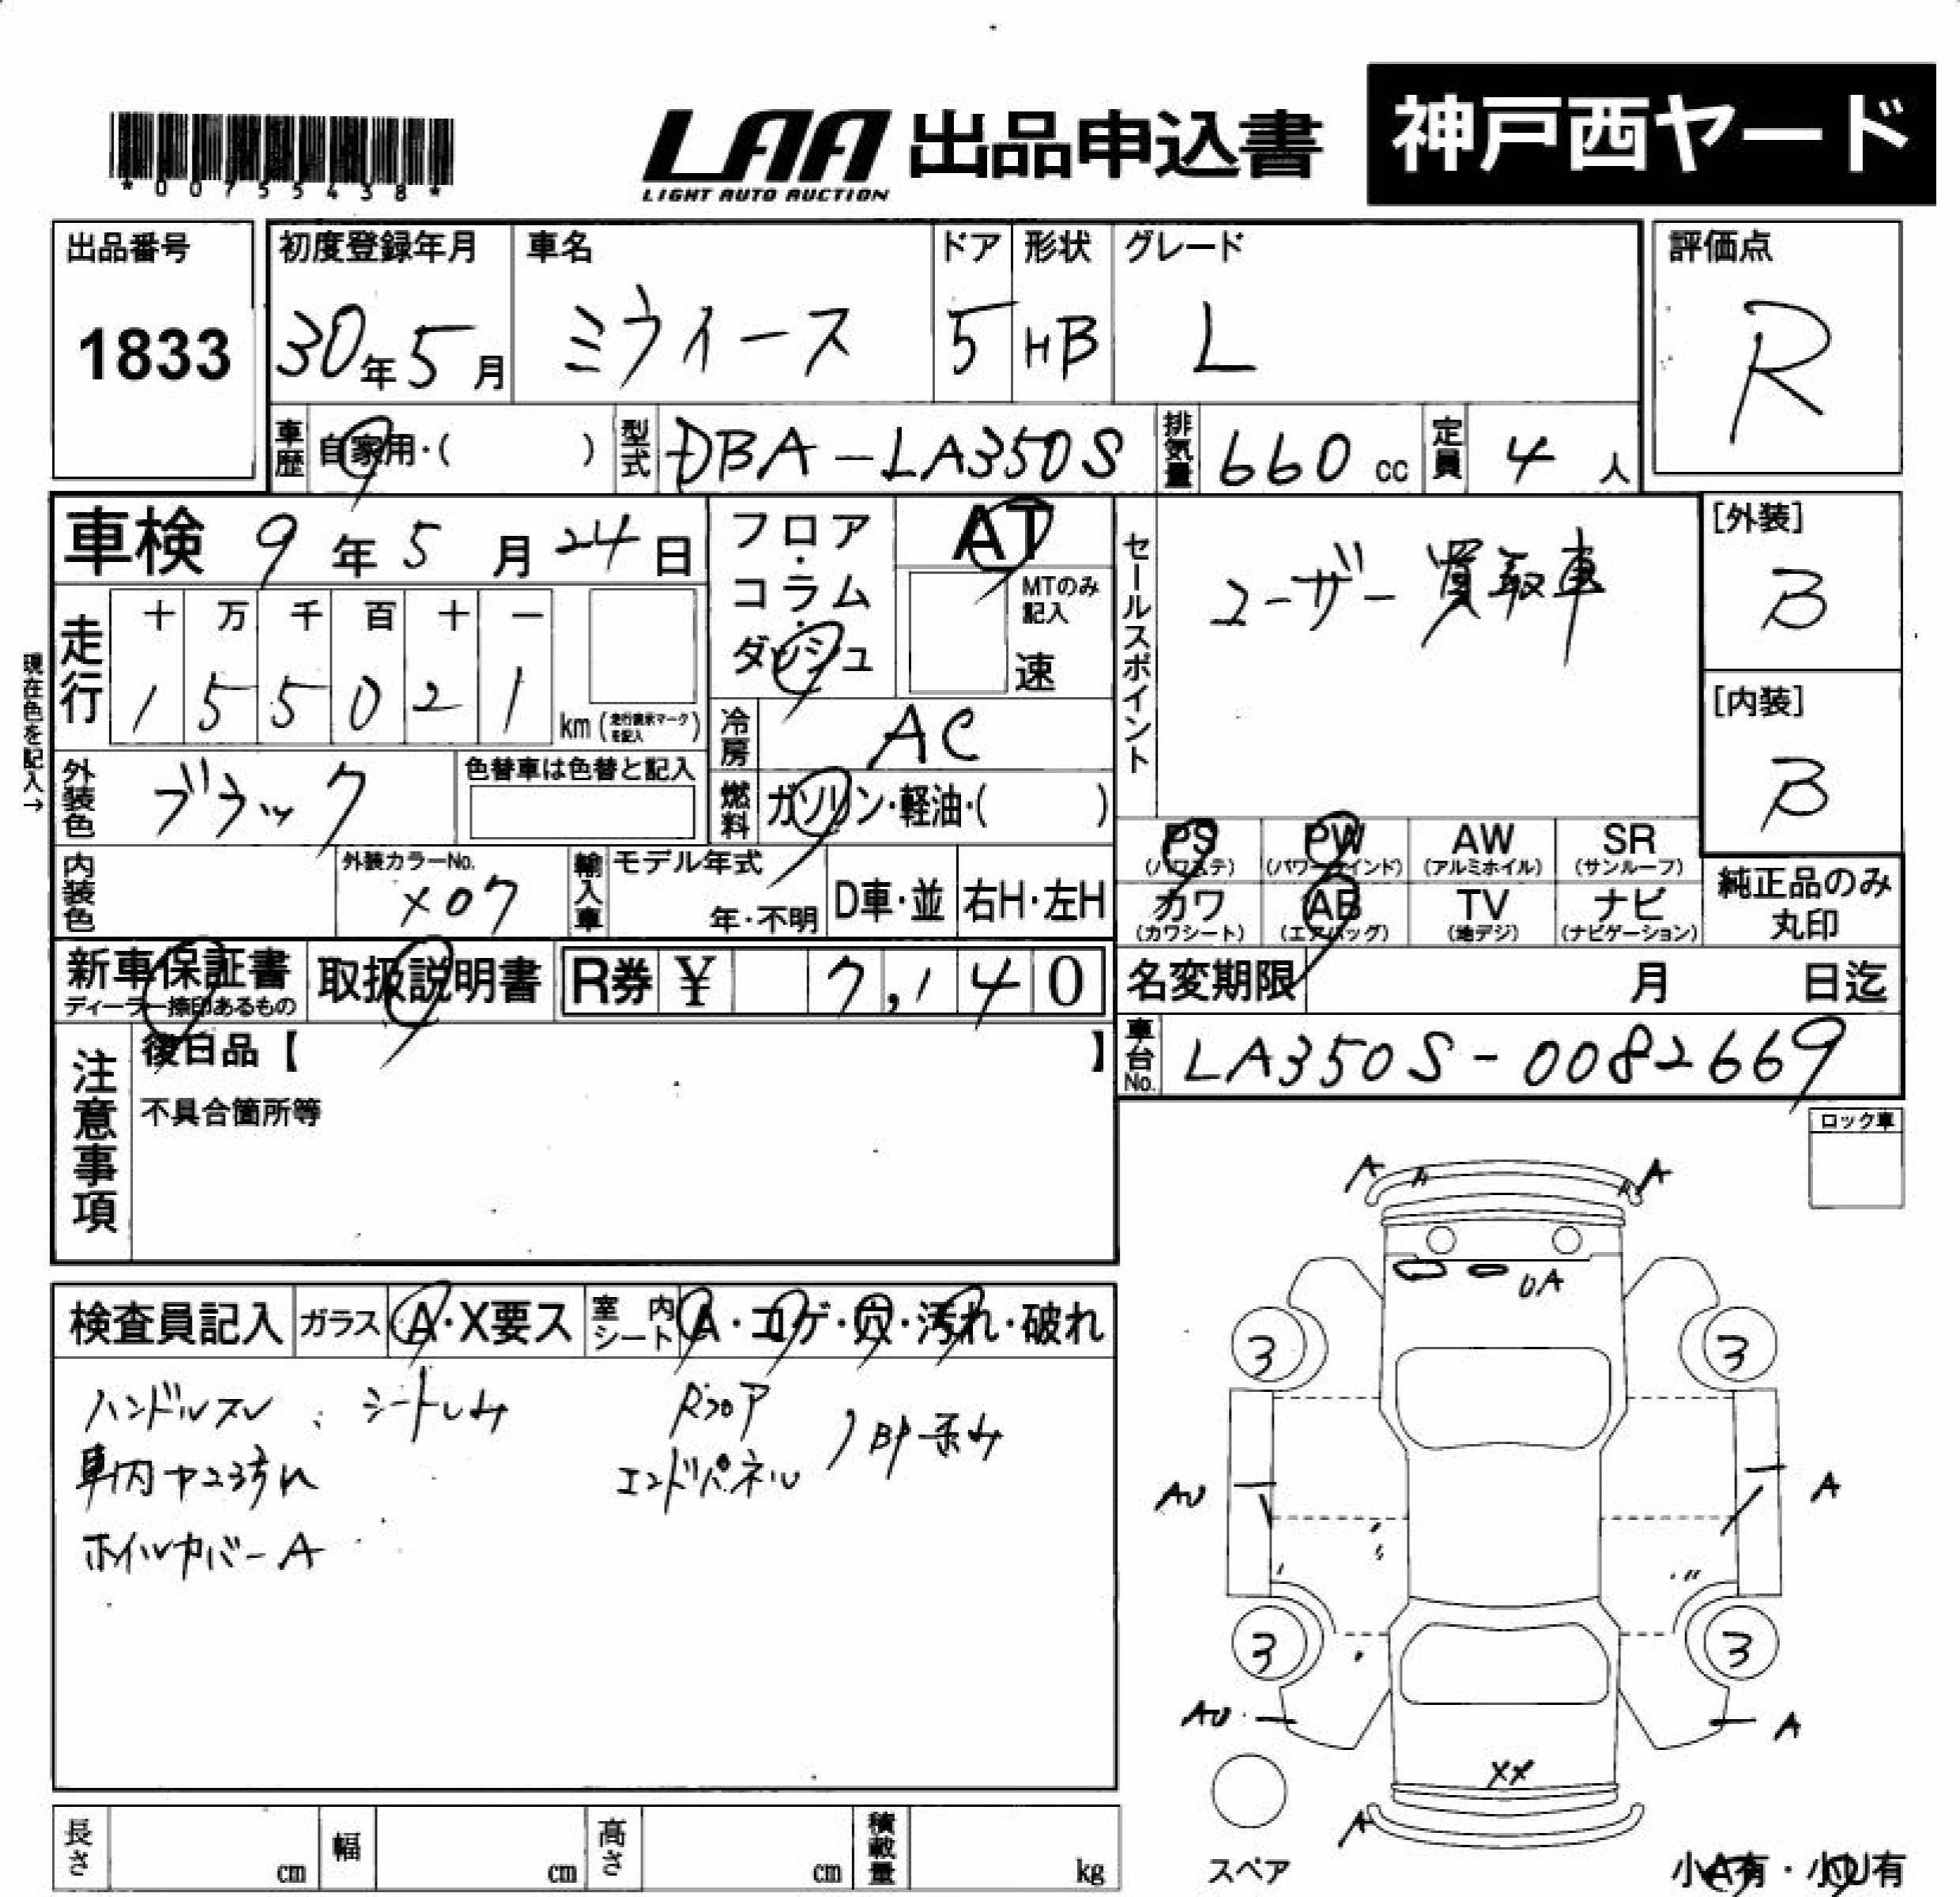 *00755438*
LAA 出品申込書 神戸西ヤード
LIGHT AUTO AUCTION
出品番号 初度登録年月 車名 ドア 形状 グレード 評価点
1833 30年5月 ミライース 5 HB L R
車歴 自家用・( ) 型式 DBA-LA350S 排気量 660 cc 定員 4 人
車検 9年5月24日 フロア・コラム・ダッシュ AT
MTのみ記入
速
セールスポイント ユーザー買取車
[外装]
B
[内装]
B
現在色を記入→
走行 十 万 千 百 十 一
1 5 5 0 2 1 km(走行表示マークを記入)
冷房 AC
外装色 ブラック 色替車は色替と記入
燃料 ガソリン・軽油・( )
PS PW AW SR
(パワステ) (パワーウインド) (アルミホイル) (サンルーフ)
カワ AB TV ナビ
(カワシート) (エアバッグ) (地デジ) (ナビゲーション)
純正品のみ
丸印
内装色 外装カラーNo. X07 輸入車 モデル年式 年・不明 D車・並 右H・左H
新車保証書 取扱説明書 R券 ¥ 7,140 名変期限 月 日迄
ディーラー捺印あるもの
車台No. LA350S-0082669
注意事項 後日品【 】
不具合箇所等
ロック車
検査員記入 ガラス A・X要ス 室内シート A・コゲ・穴・汚れ・破れ
ハンドルスレ、シートしみ Rフロア
車内ヤニ汚れ エンドパネル
ホイルカバーA
A A
UA
3 3
AU A
3 3
AU A
XX
A
スペア 小A有・小U有
長さ cm 幅 cm 高さ cm 積載量 kg